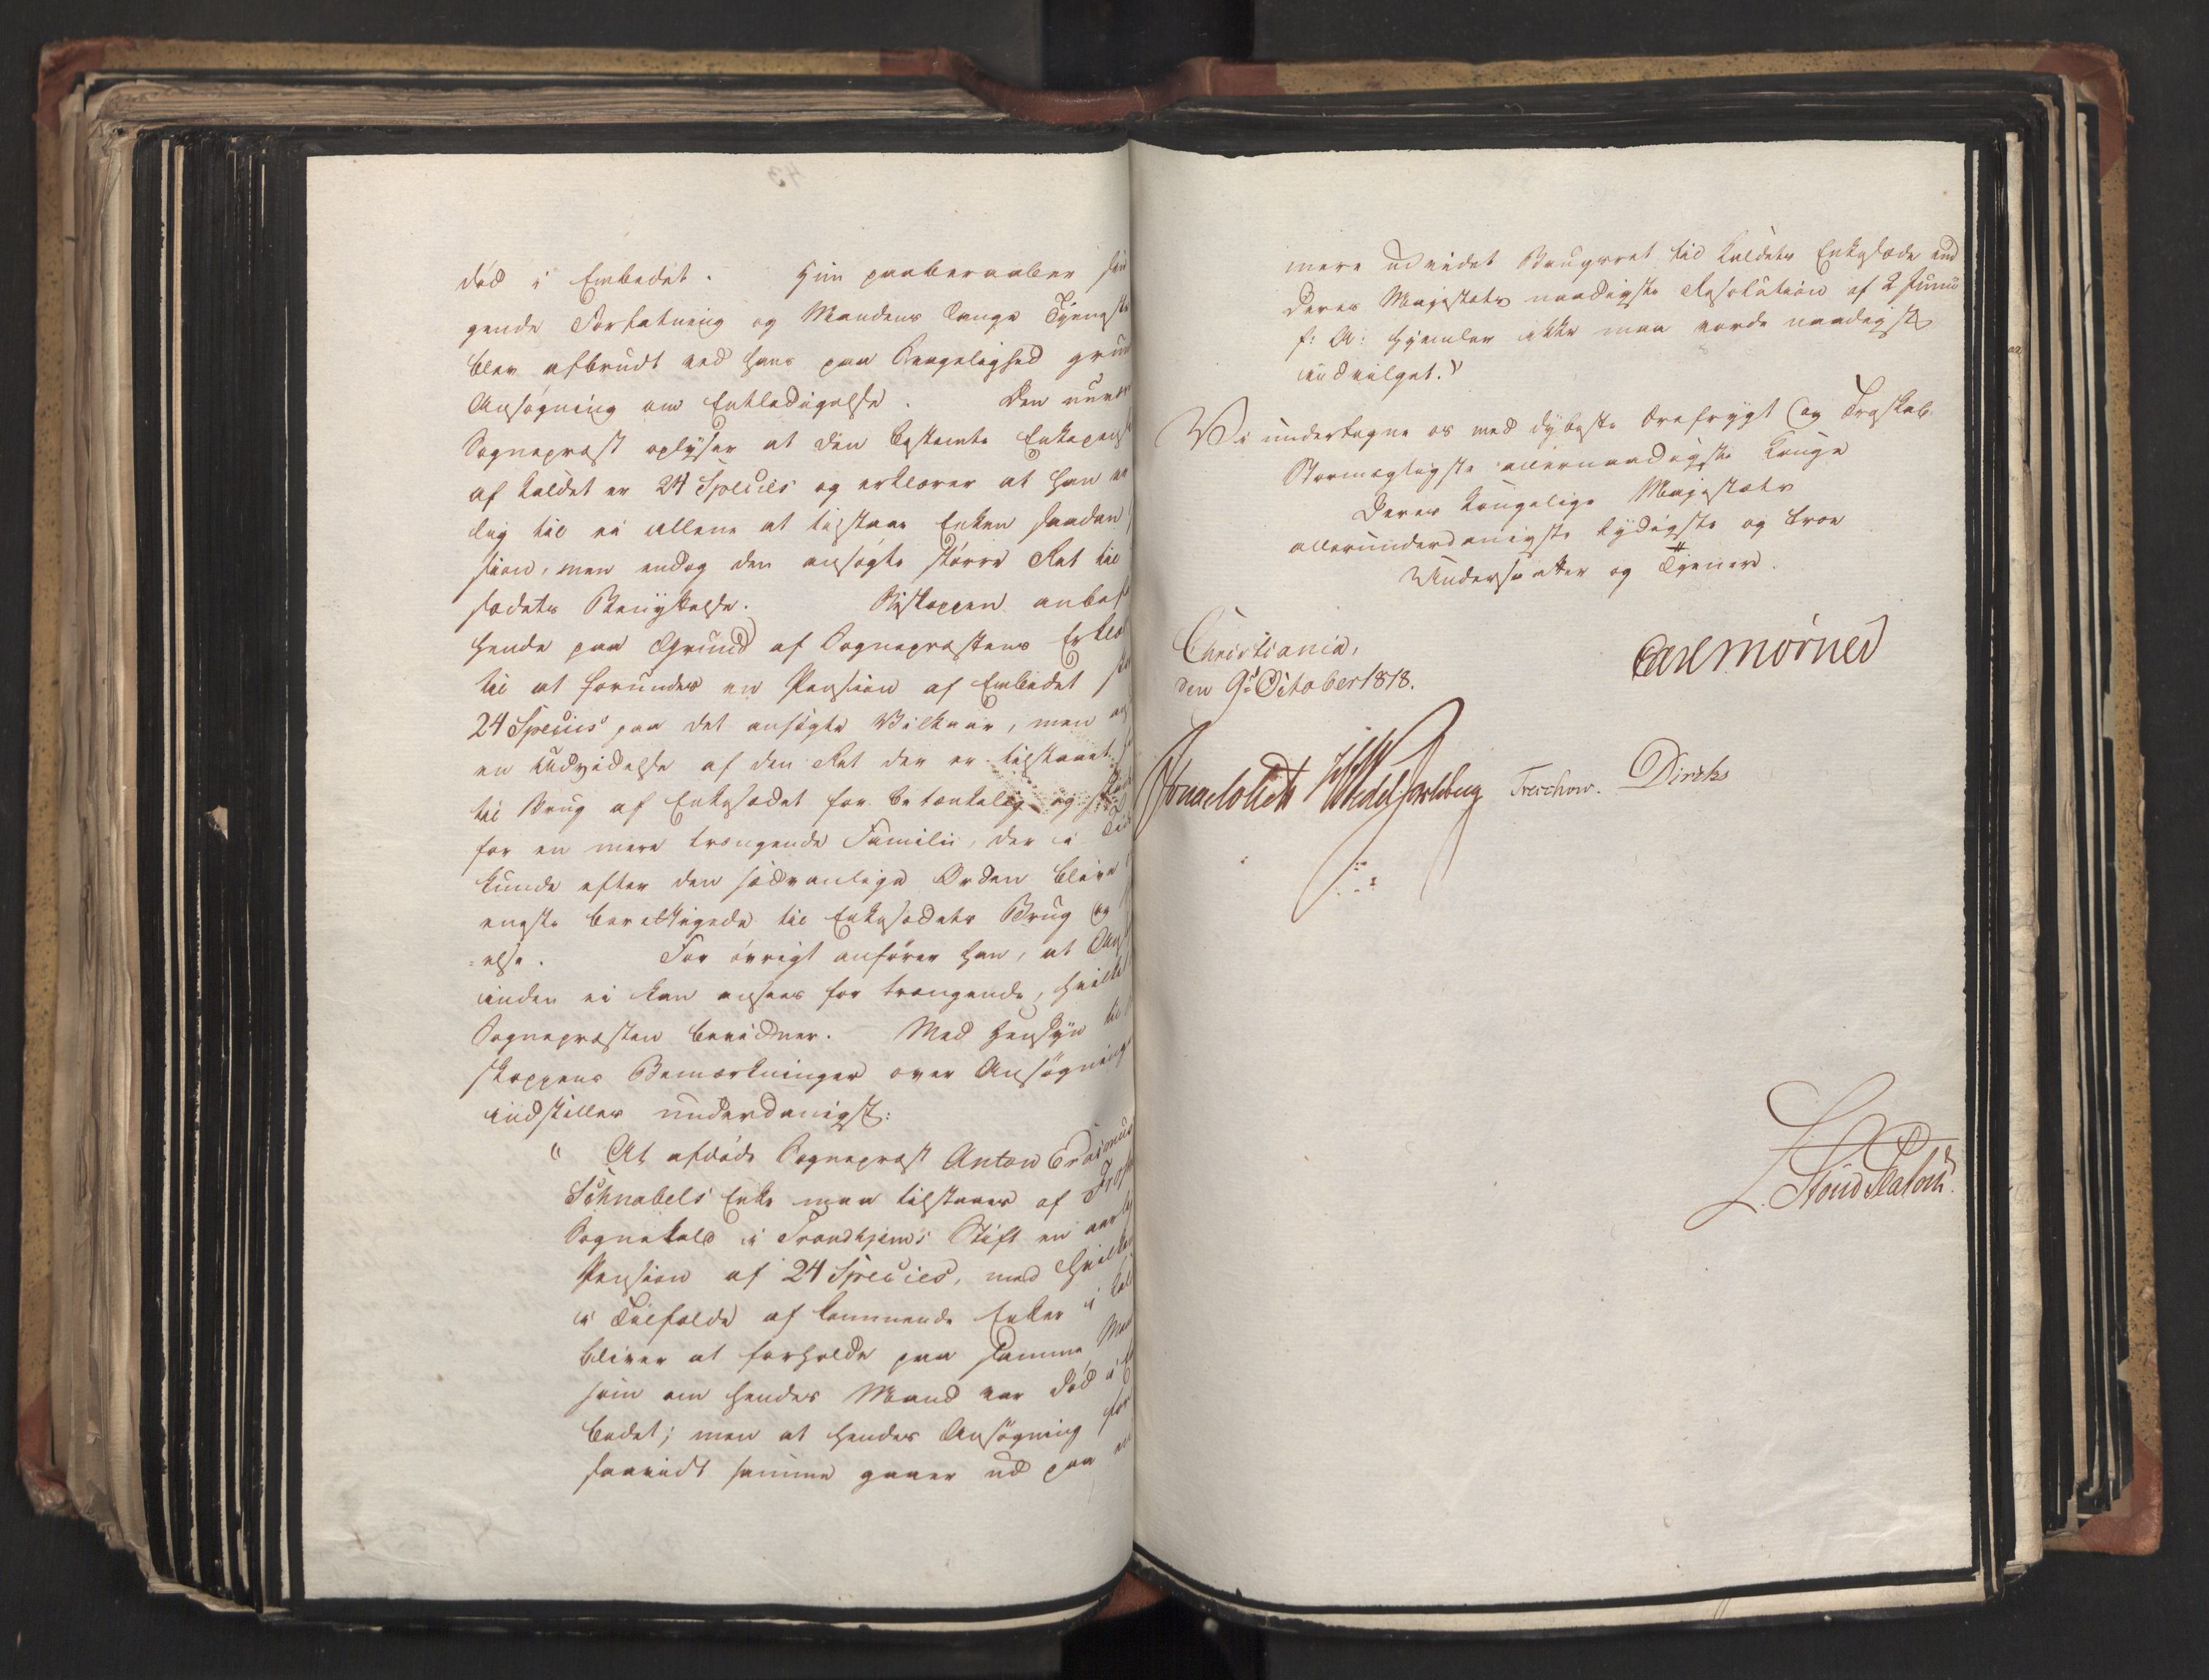 død i Embedet. Hun paaberaaber sin
gende Forfatning og Mandens lange Tjeneste
blev afbrudt ved hans paa Svagelighed grun
Ansøgning om Entledigelse. Den nuvær
Sognepræst oplyser at den bestemte Enkepens
af Kaldet er 24 Species og erklærer at han er
lig til ei allene at tilstaae Enken saadan
sion, men endog den ansøgte større Ret til
sædets Benyttelse. Biskoppen anbef
hende paa Grund af Sognepræstens Erklæ
til at forundes en Pension af Embedet
24 Species paa det ansøgte Vilkaar, men
en Udvidelse af den Ret der er tilstaaet
til Brug af Enkesædet for betænkelig og
for en mere trængende Familie, der i Tid
kunde efter den sædvanlige Orden blive
eneste berettigede til Enkesædets Brug og
=else. For øvrigt anfører han, at Ans
inden ei kan ansees for trængende, hvilket
Sognepræsten bevidner. Med Hensyn til
skoppens Bemærkninger over Ansøgning
indstilles underdanigst:
"At afdøde Sognepræst Anton Erasmus
Schnabels Enke maa tilstaaes af
Sognekald i Trondhjems Stift en aarlig
Pension af 24 Species, med Hvilken
i Tilfælde af kommende Enker i Kal
bliver at forholde paa samme Maa
som om hendes Mand var død i Em
bedet; men at hendes Ansøgning for
saavidt samme gaaer ud paa en
mere udvidet Brugsret til Kaldets Enkesæde end
Deres Majestæts naadigste Resolution af 2 Junii
f: A: hjemler ikke maa vorde naadigst
indvilget."
Vi undertegne os med dybeste Ærefrygt og Troskab
Stormægtigste allernaadigste Konge
Deres Kongelige Majestæts
allerunderdanigste lydigste og troe
Undersaatter og Tjenere.
Christiania,
den 9d October 1818.
Carl Mörner
Jonas Collett Wedel Jarlsberg Treschow. Diriks